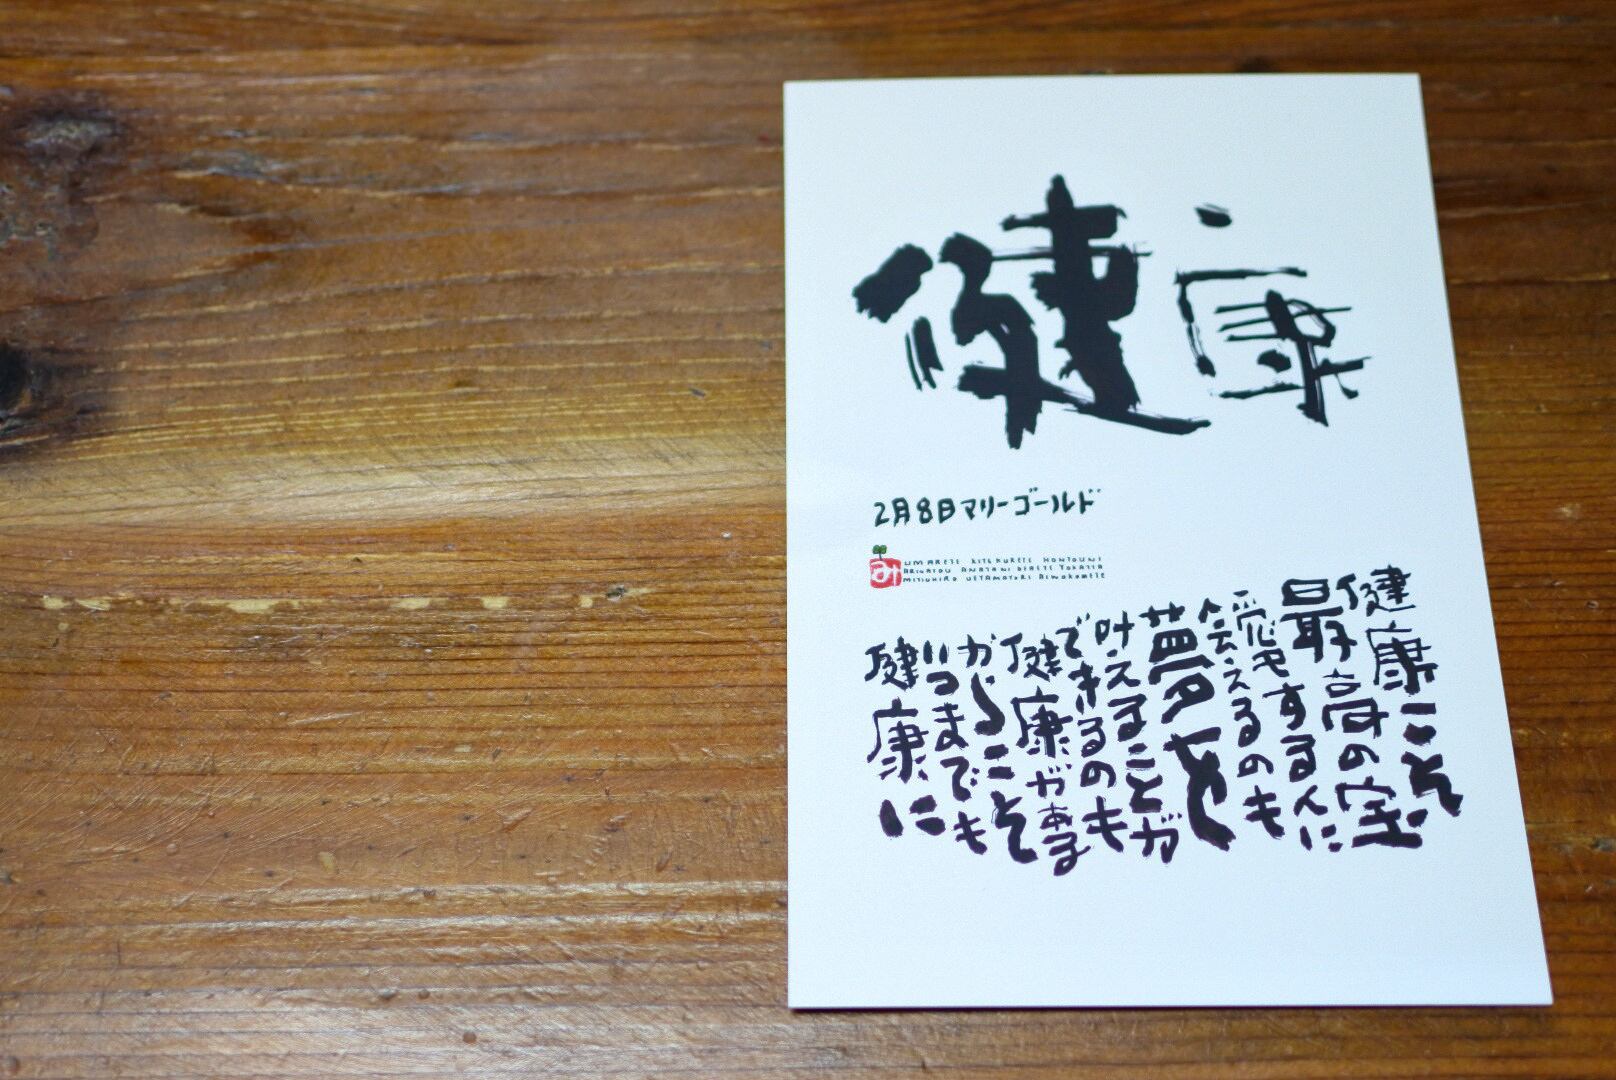 健康
2月8日マリーゴールド
み
UMARETE KITEKURETE HONTOUNI
ARIGATOU ANATANI DEAETE YOKATTA
MITSUHIRO UEYAMAYORI AIWOKOMETE
健康こそ
最高の宝
愛する人に
会えるのも
夢を
叶えることが
できるのも
健康が有る
からこそ
いつまでも
健康に